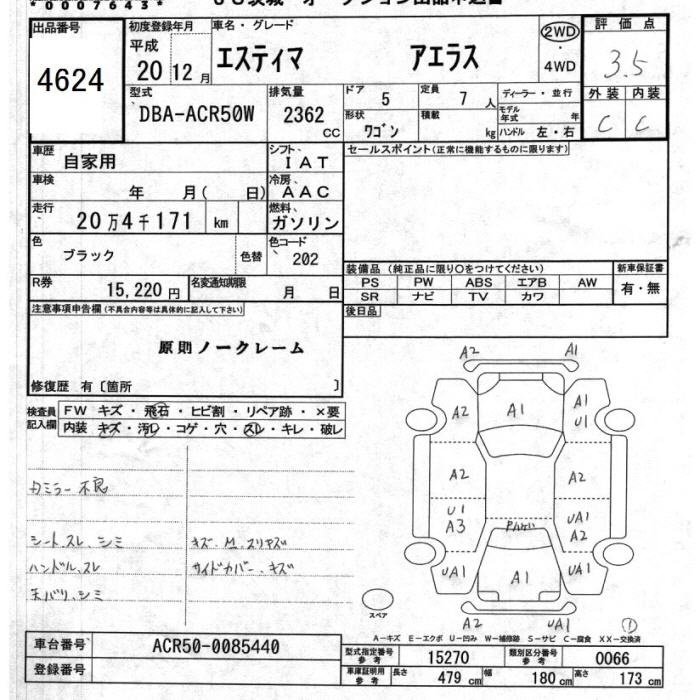 *0007643*
出品番号
4624
初度登録年月
平成
20 12 月
車名・グレード
エスティマ アエラス
2WD
・
4WD
評価点
3.5
外装 内装
C C
型式
DBA-ACR50W
排気量
2362
CC
ドア 5
定員 7 人
ディーラー・並行
形状 ワゴン
積載 kg
モデル年式 年
ハンドル 左・右
車歴 自家用
シフト IAT
セールスポイント(正常に機能するものに限ります)
車検 年 月( 日)
冷房 AAC
走行 20万4千171 km
燃料 ガソリン
色 ブラック 色替
色コード 202
装備品(純正品に限り○をつけてください)
新車保証書
PS PW ABS エアB AW
SR ナビ TV カワ
有・無
R券 15,220円
名変通知期限 月 日
後日品
注意事項申告欄(不具合内容等は具体的に記入して下さい)
原則ノークレーム
修復歴 有〔箇所 〕
検査員記入欄
FW キズ・飛石・ヒビ割・リペア跡・×要
内装 キズ・汚レ・コゲ・穴・スレ・キレ・破レ
カミラー不良
シート、スレ、シミ
ハンドル、スレ
天バリ、シミ
キズ、M、スリキズ
サイドカバー、キズ
A2 A1
A2 A1 A1
U1
A2 A2
U1 UA1
A3 A2
UA1 A1 UA1
A2 UA1
スペア
①
A-キズ E-エクボ U-凹み W-補修跡 S-サビ C-腐食 XX-交換済
車台番号 ACR50-0085440
登録番号
型式指定番号 参考 15270
類別区分番号 参考 0066
車庫証明用 参考 長さ 479 cm 幅 180 cm 高さ 173 cm